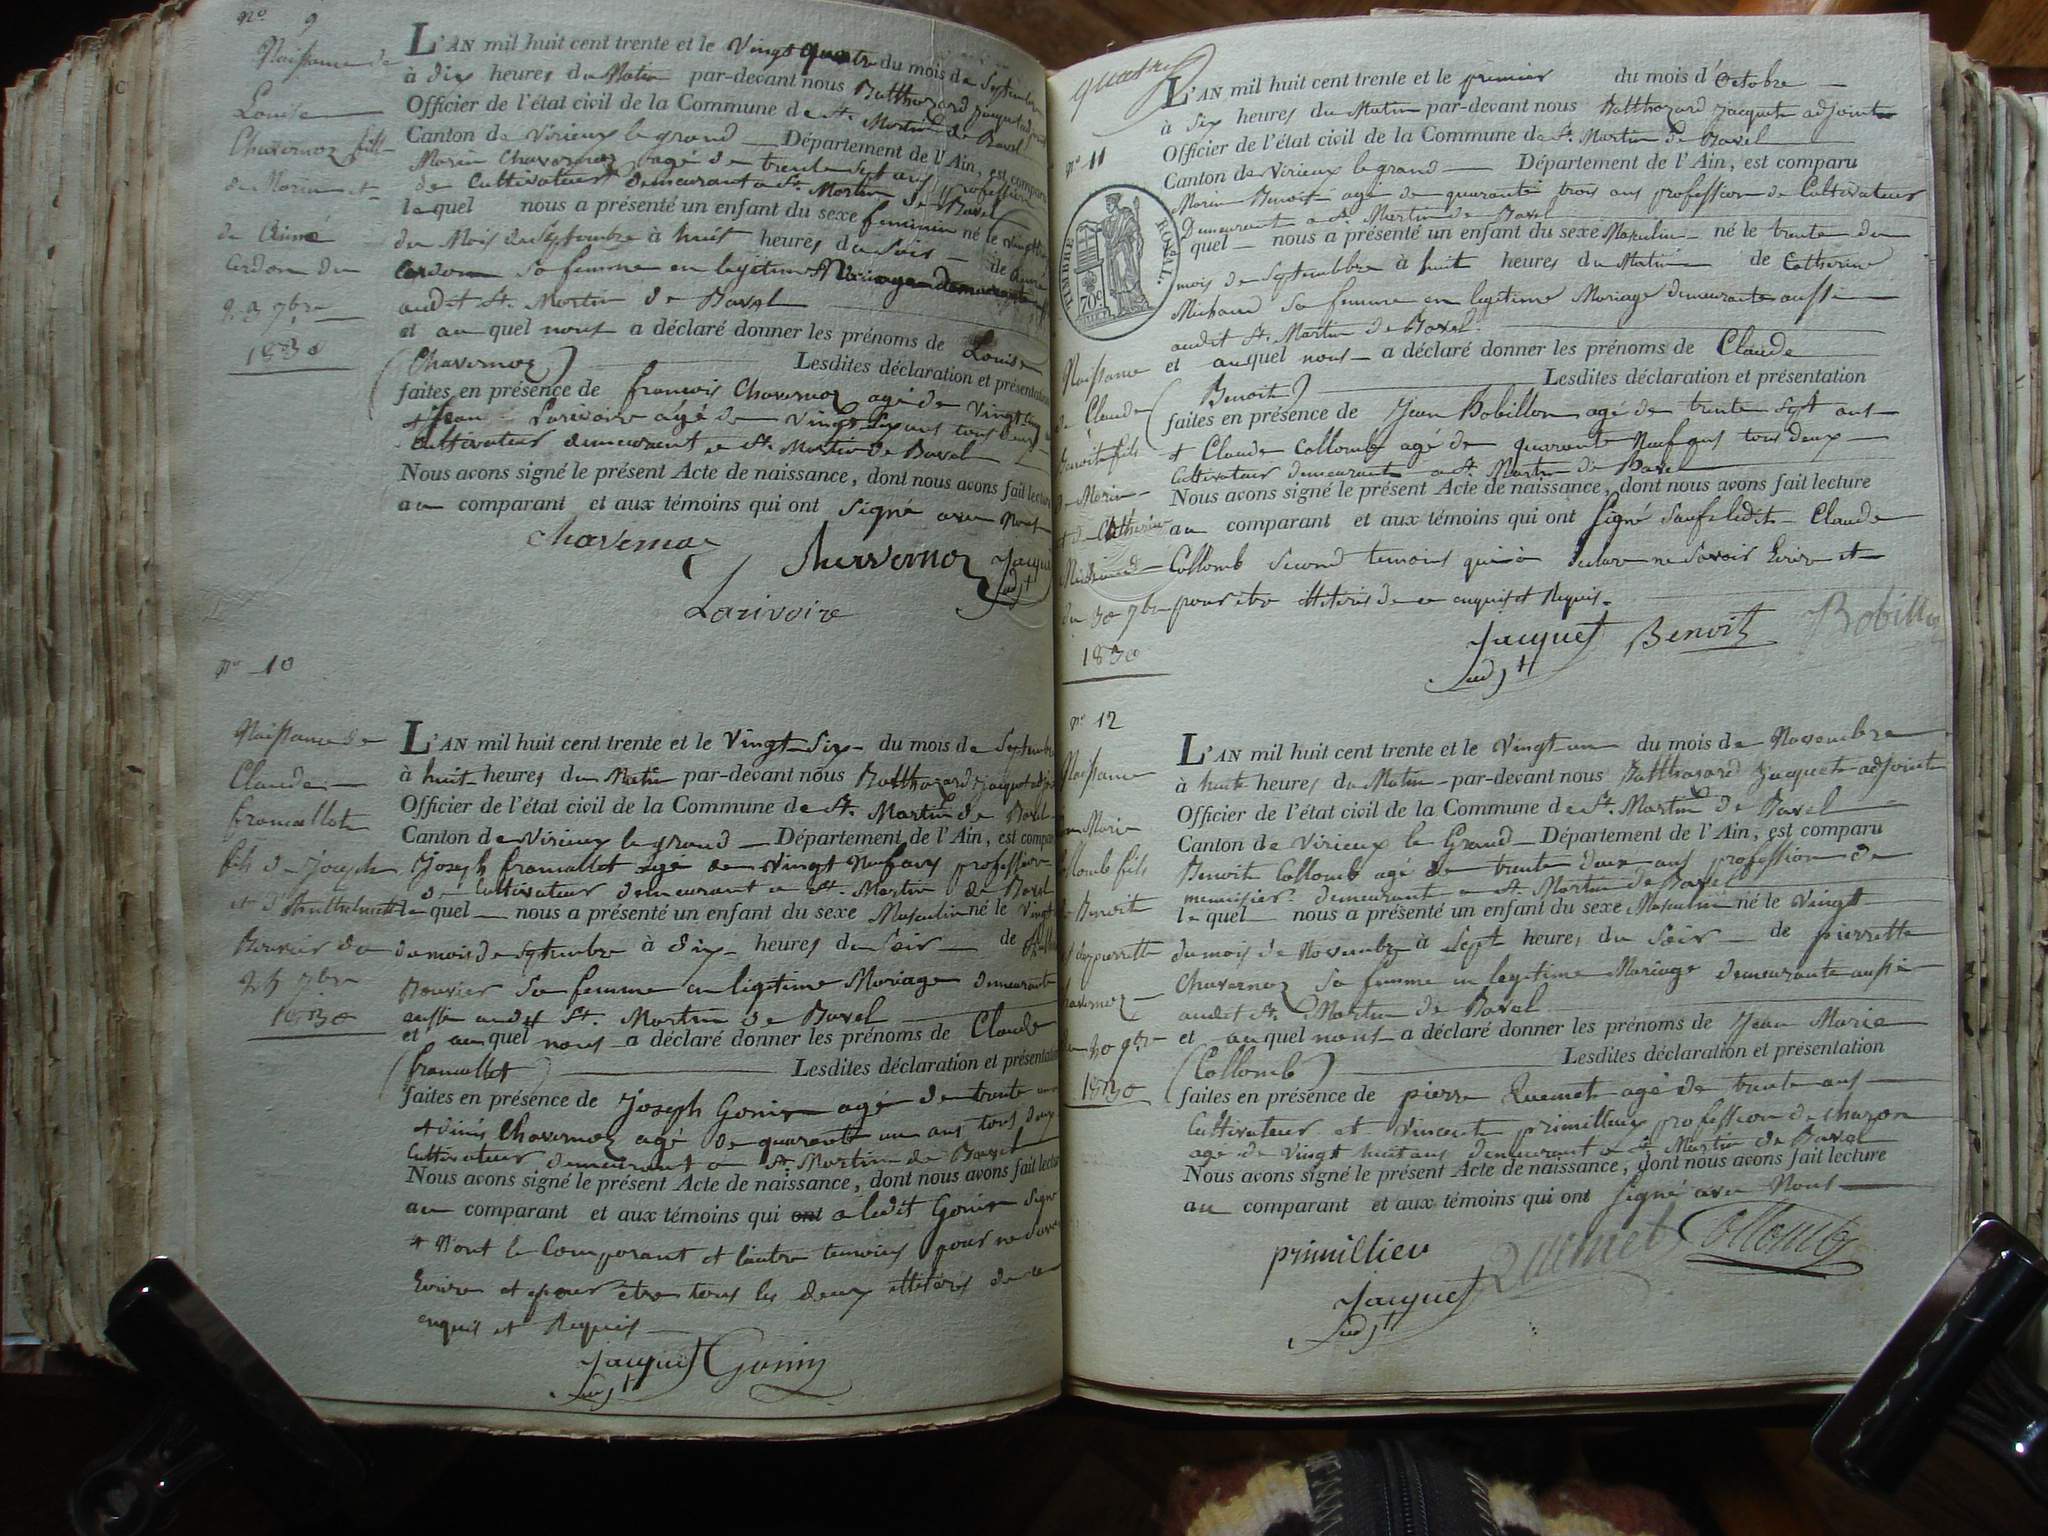 N° 9
Naissance de
Louise
Chavernoz fille
de Marin et
de Aimé
Cardon du
23 7bre
1830
L'AN mil huit cent trente et le Vingt quatre du mois de Septembre
à dix heures du Matin par-devant nous Balthazard Jacquet adjoint
Officier de l'état civil de la Commune de St. Martin de Bavel
Canton de Virieux le grand Département de l'Ain, est comparu
Marin Chavernoz agé de trente Sept ans profession
de Cultivateur demeurant a St. Martin de Bavel
lequel nous a présenté un enfant du sexe feminin né le vingt
du Mois de Septembre à huit heures du Soir de
Cardon sa femme en legitime Mariage demeurante
audit St. Martin de Bavel
et au quel nous a déclaré donner les prénoms de Louise
(Chavernoz) Lesdites déclaration et présentation
faites en présence de francois Chavernoz agé de Vingt cinq
et Jean Larivoire agé de Vingt Six ans tous deux
Cultivateur demeurant a St. Martin de Bavel
Nous avons signé le présent Acte de naissance, dont nous avons fait lecture
au comparant et aux témoins qui ont signé avec Nous
Chavernoz Chavernoz Jacquet
adjt
Larivoire
N° 10
Naissance de
Claude
fromallot
fils de Joseph
et d'Anthelmette
Bouvier du
25 7bre
1830
L'AN mil huit cent trente et le Vingt Six du mois de Septembre
à huit heures du Matin par-devant nous Balthazard Jacquet adjoint
Officier de l'état civil de la Commune de St. Martin de Bavel
Canton de Virieux le grand Département de l'Ain, est comparu
Joseph fromallot agé de Vingt Neuf ans profession
de Cultivateur demeurant a St. Martin de Bavel
lequel nous a présenté un enfant du sexe Masculin né le Vingt
du mois de Septembre à dix heures du Soir de
Bouvier Sa femme en legitime Mariage demeurante
aussi audit St. Martin de Bavel
et au quel nous a déclaré donner les prénoms de Claude
(fromallot) Lesdites déclaration et présentation
faites en présence de Joseph Gonin agé de trente ans
et Chavernoz agé de quarante un ans tous deux
Cultivateur demeurant a St. Martin de Bavel
Nous avons signé le présent Acte de naissance, dont nous avons fait lecture
au comparant et aux témoins qui ont a ledit Gonin Signé
et Nont le Comparant et l'autre temoins pour ne savoir
Ecrire et pour etre tous les deux illiteres de ce
enquis et Requis
Jacquet Gonin
adjt
quatre
N° 11
TIMBRE ROYAL.
70c
Naissance
de Claude
Benoit fils
de Marin
et de Catherine
Michaud
du 30 7bre
1830
L'AN mil huit cent trente et le premier du mois d'Octobre
à Six heures du Matin par-devant nous Balthazard Jacquet adjoint
Officier de l'état civil de la Commune de St. Martin de Bavel
Canton de Virieux le grand Département de l'Ain, est comparu
Marin Benoit agé de quarante trois ans profession de Cultivateur
Demeurant a St. Martin de Bavel
quel nous a présenté un enfant du sexe Masculin né le trente du
mois de Septembbre à huit heures du Matin de Catherine
Michaud Sa femme en legitime Mariage demeurante aussi
audit St. Martin de Bavel
et au quel nous a déclaré donner les prénoms de Claude
(Benoit) Lesdites déclaration et présentation
faites en présence de Jean Bobillon agé de trente Sept ans
et Claude Collomb agé de quarante Neuf ans tous deux
Cultivateur demeurant a St. Martin de Bavel
Nous avons signé le présent Acte de naissance, dont nous avons fait lecture
au comparant et aux témoins qui ont Signé Sauf ledit Claude
Collomb Second temoins qui a declare ne Savoir Ecrire et
pour etre illiteris de ce enquis et Requis.
Jacquet Benoit Bobillon
adjt
N° 12
Naissance
Jean Marie
Collomb fils
de Benoit
et de pierrette
Chavernoz
du 20 9bre
1830
L'AN mil huit cent trente et le Vingt un du mois de Novembre
à huit heures du Matin par-devant nous Balthazard Jacquet adjoint
Officier de l'état civil de la Commune de St. Martin de Bavel
Canton de Virieux le Grand Département de l'Ain, est comparu
Benoit Collomb agé de trente deux ans profession de
menuisier demeurant a St. Martin de Bavel
lequel nous a présenté un enfant du sexe Masculin né le Vingt
du mois de Novembre à Sept heures du Soir de pierrette
Chavernoz Sa femme en legitime Mariage demeurante aussi
audit St. Martin de Bavel
et au quel nous a déclaré donner les prénoms de Jean Marie
(Collomb) Lesdites déclaration et présentation
faites en présence de pierre agé de trente ans
Cultivateur et Vincent primillieu profession de charon
agé de Vingt huit ans demeurant a St Martin de Bavel
Nous avons signé le présent Acte de naissance, dont nous avons fait lecture
au comparant et aux témoins qui ont Signé avec Nous
primillieu Collomb
Jacquet
adjt